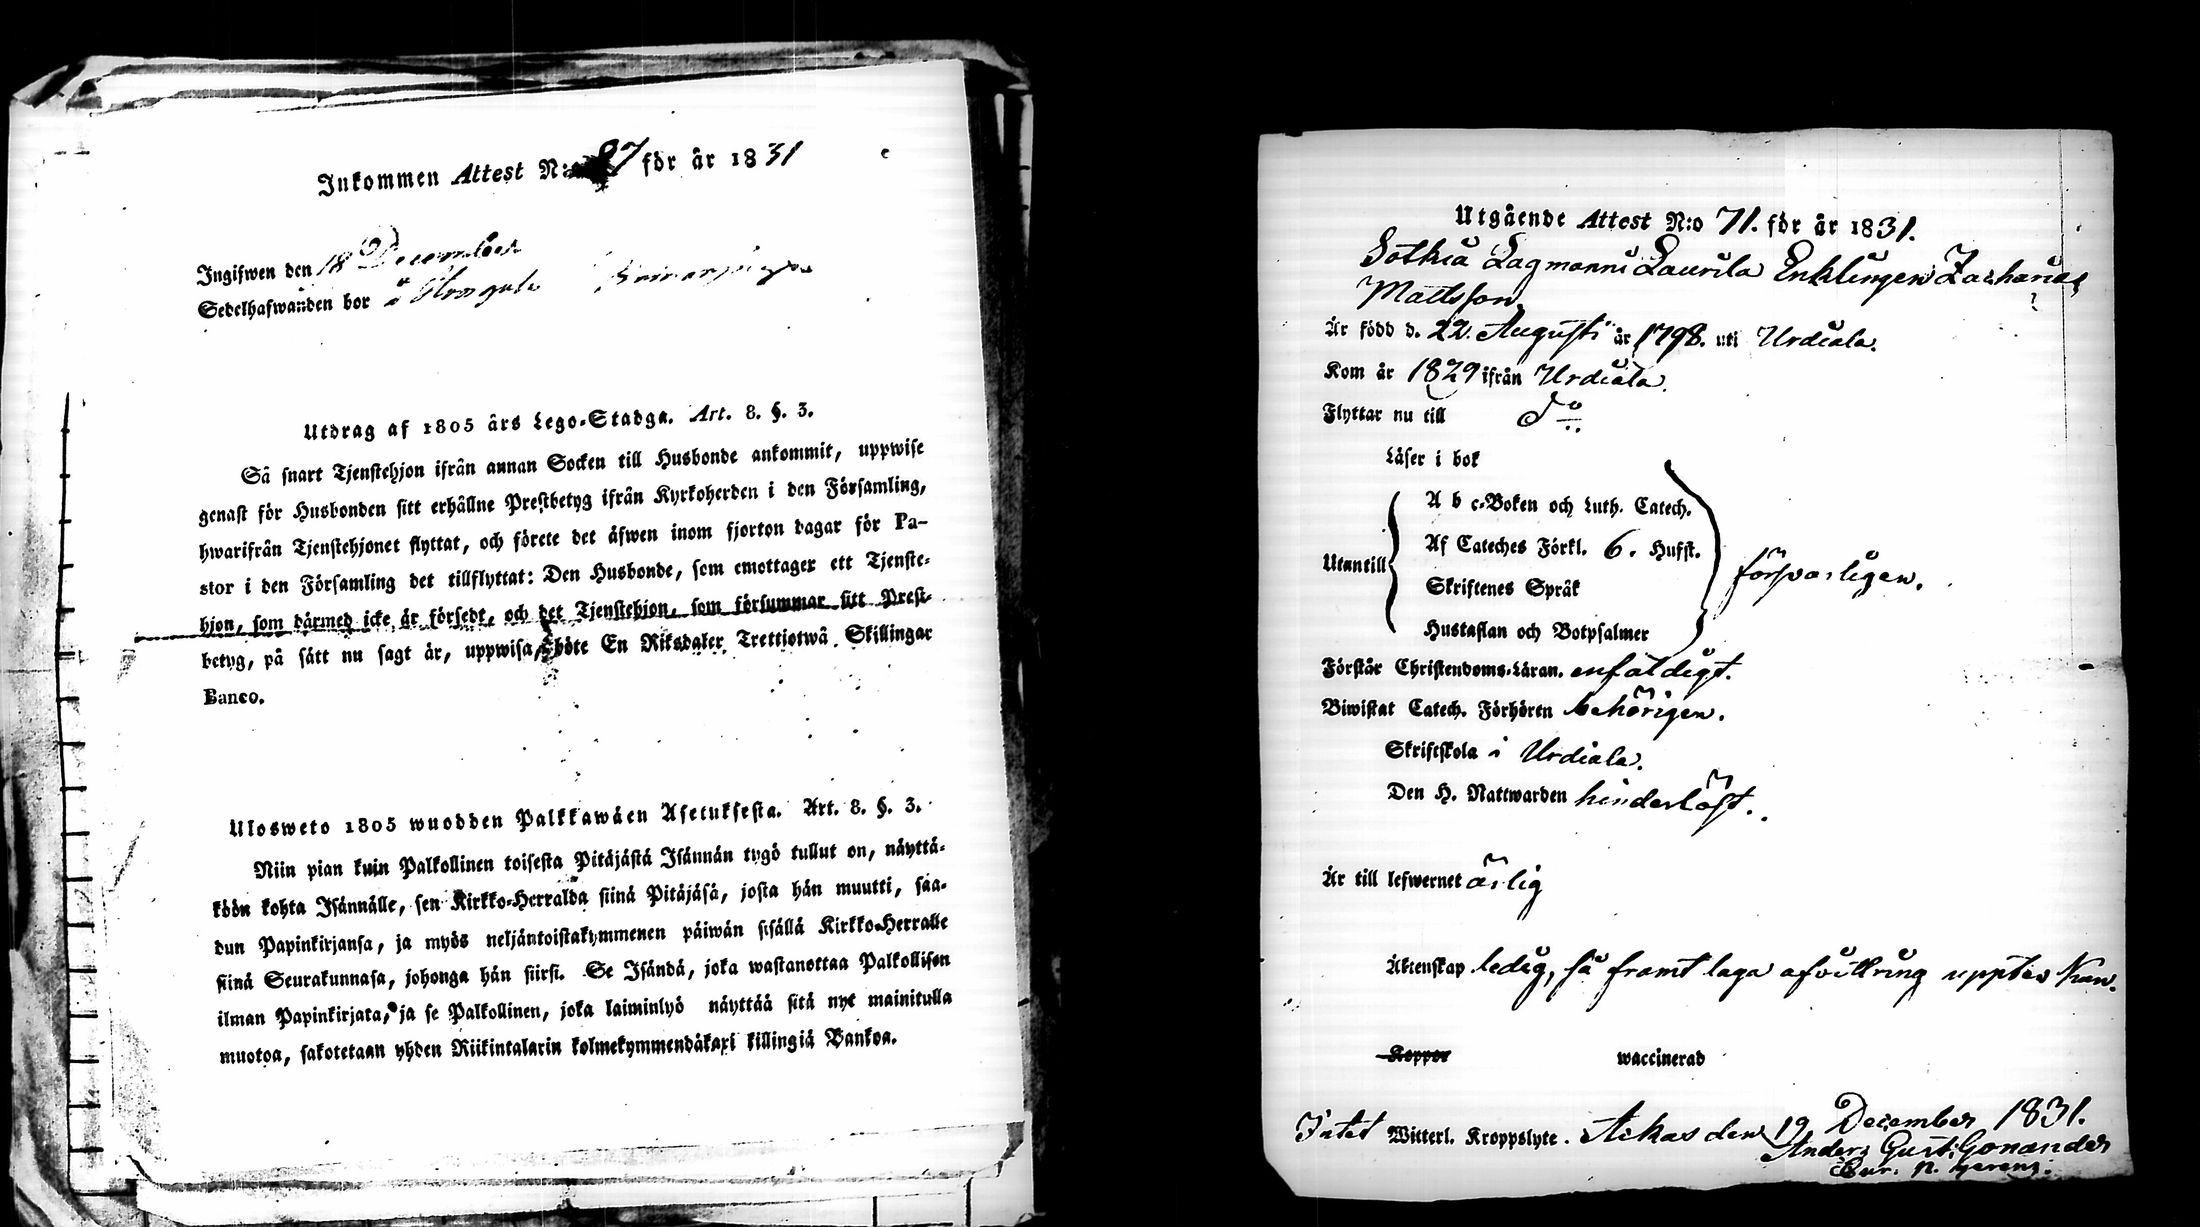 Inkommen Attest N:o 87 för år 1831
Ingifwen den 18 December
Sedelhafwanden bor i
Utdrag af 1805 års Lego-Stadga. Art. 8. §. 3.
Så snart Tjenstehjon ifrån annan Socken till Husbonde ankommit, uppwise
genast för Husbonden sitt erhållne Prestbetyg ifrån Kyrkoherden i den Församling,
hwarifrån Tjenstehjonet flyttat, och förete det äfwen inom fjorton dagar för Pa-
stor i den Församling det tillflyttat: Den Husbonde, som emottager ett Tjenste-
hjon, som därmed icke är försedt, och det Tjenstehjon, som försummar sitt Prest-
betyg, på sätt nu sagt är, uppwisa, böte En Riksdaler Trettiotwå Skillingar
Banco.
Ulosweto 1805 wuodden Palkkawäen Asetuksesta. Art. 8. §. 3.
Niin pian kuin Palkollinen toisesta Pitäjästä Isännän tygö tullut on, näyttä-
köön kohta Isännälle, sen Kirkko-Herralda siinä Pitäjäsä, josta hän muutti, saa-
dun Papinkirjansa, ja myös neljäntoistakymmenen päiwän sisällä Kirkko-Herralle
siinä Seurakunnasa, johonga hän siirsi. Se Isändä, joka wastanottaa Palkollisen
ilman Papinkirjata, ja se Palkollinen, joka laiminlyö näyttää sitä nyt mainitulla
muotoa, sakotetaan yhden Riikintalarin kolmekymmendäkaxi killingiä Bankoa.
Utgående Attest N:o 71. för år 1831.
Sotkia Lagmanni Laurila Enklingen Zacharias
Mattsson
Är född d. 22. Augusti år 1798. uti Urdiala.
Kom år 1829 ifrån Urdiala.
Flyttar nu till do
Läser i bok
A b c-Boken och Luth. Catech.
Af Cateches Förkl. 6. Hufst.
Utantill
Skriftenes Språk
försvarligen.
Hustaflan och Botpsalmer
Förstår Christendoms-Läran. enfaldigt.
Biwistat Catech. Förhören behörigen.
Skriftskola i Urdiala.
Den H. Nattwarden hinderlöst.
Är till lefwernet ärlig
Äktenskap ledig, så framt laga afvittring upptes kan.
Koppor waccinerad
Intet Witterl. Kroppslyte. Ackas den 19 December 1831.
Anders Gust: Gonander